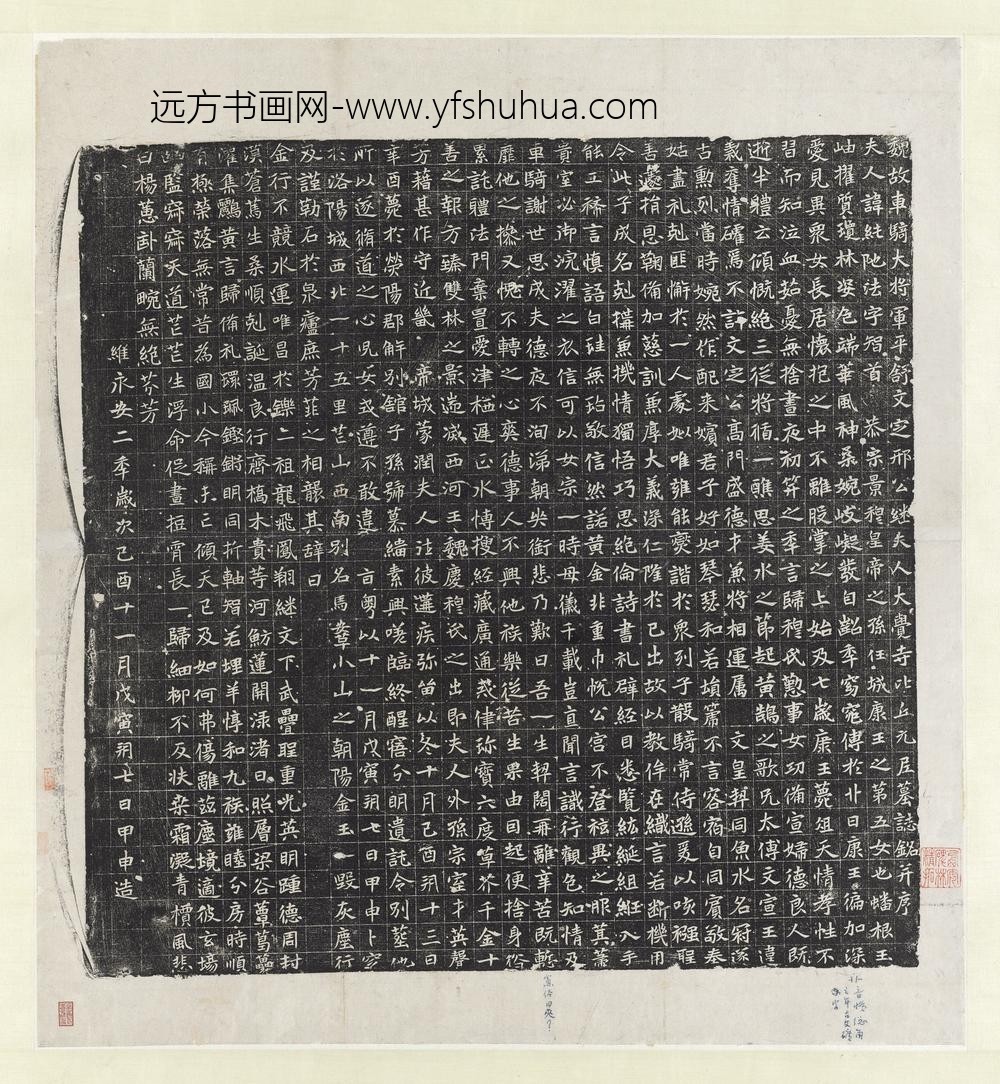 远方书画网-www.yfshuhua.com
魏故車騎大將軍平舒文定邢公継夫人大覺寺比丘元尼墓誌銘并序
夫人諱純陁法字智首恭宗景穆皇帝之孫任城康王之第五女也蟠根玉
岫擢質瓊林姿色端華風神柔婉岐嶷發自齠年窈窕傳於丱日康王徧加深
愛見異眾女長居懷抱之中不離股掌之上始及七歲康王薨俎天情孝性不
習而知泣血茹憂無捨晝夜初笄之年言歸穆氏懃事女功俻宣婦德良人既
逝半體云傾慨絕三從將循一醮思姜水之節起黃鵠之歌兄太傅文宣王違
義奪情確焉不許文定公高門盛德才兼將相運属文皇契同魚水名冠遂
古勳烈當時婉然作配来嬪君子好如琴瑟和若塤篪不言容宿自同賓敬奉
姑盡礼剋匪懈於一人處姒唯雍能燮諧於眾列子散騎常侍遜爰以咳襁聖
善遂捐恩鞠俻加慈訓兼厚大義深仁隆於己出故以教侔在織言若断機用
令此子成名剋搆兼機情獨悟巧思絕倫詩書礼辟經目悉覽紘綖組紝入手
能工稀言慎語白珪無玷敬信然諾黃金非重巾帨公宮不登袨異之服箕箒
貴室必御浣濯之衣信可以女宗一時母儀千載豈直聞言識行觀色知情及
車騎謝世思成夫德夜不洵涕朝哭銜悲乃歎曰吾一生契闊再離辛苦既慙
靡他之操又愧不轉之心爽德事人不興他族樂從苦生果由因起便捨身俗
累託體法門棄置愛津栖遲正水博搜經藏廣通戒律珍寶六度草芥千金十
善之報方臻雙林之影遄滅西河王魏慶穆氏之出即夫人外孫宗室才英聲
芳藉甚作守近畿帝城蒙潤夫人往彼遘疾弥留以冬十月己酉朔十三日
辛酉薨於滎陽郡解別館子孫號慕緇素興嗟臨終醒寤分明遺託令別葬他
所以遂脩道之心兒女式遵不敢違旨粤以十一月戊寅朔七日甲申卜窆
於洛陽城西北一十五里芒山西南別名馬鞌小山之朝陽金玉一毀灰塵行
及謹勒石於泉廬庶芳菲之相襲其辞曰
金行不競水運唯昌於鑠二祖龍飛鳳翔継文下武疊聖重光英明踵德周封
漢蒼篤生柔順剋誕溫良行齊橋木貴等河魴蓮開淥渚日照層梁谷蕈葛虆
濯集鸝黃言歸俻礼環珮鏗鏘明同折軸智若埋羊惇和九族雍睦分房時順
有極榮落無常昔為國小今稱未亡傾天已及如何弗傷離茲塵境適彼玄場
幽監寂寂天道芒芒生浮命促晝短宵長一歸細柳不反扶桒霜凝青檟風悲
白楊蕙卧蘭畹無絕芬芳
維永安二年歲次己酉十一月戊寅朔七日甲申造